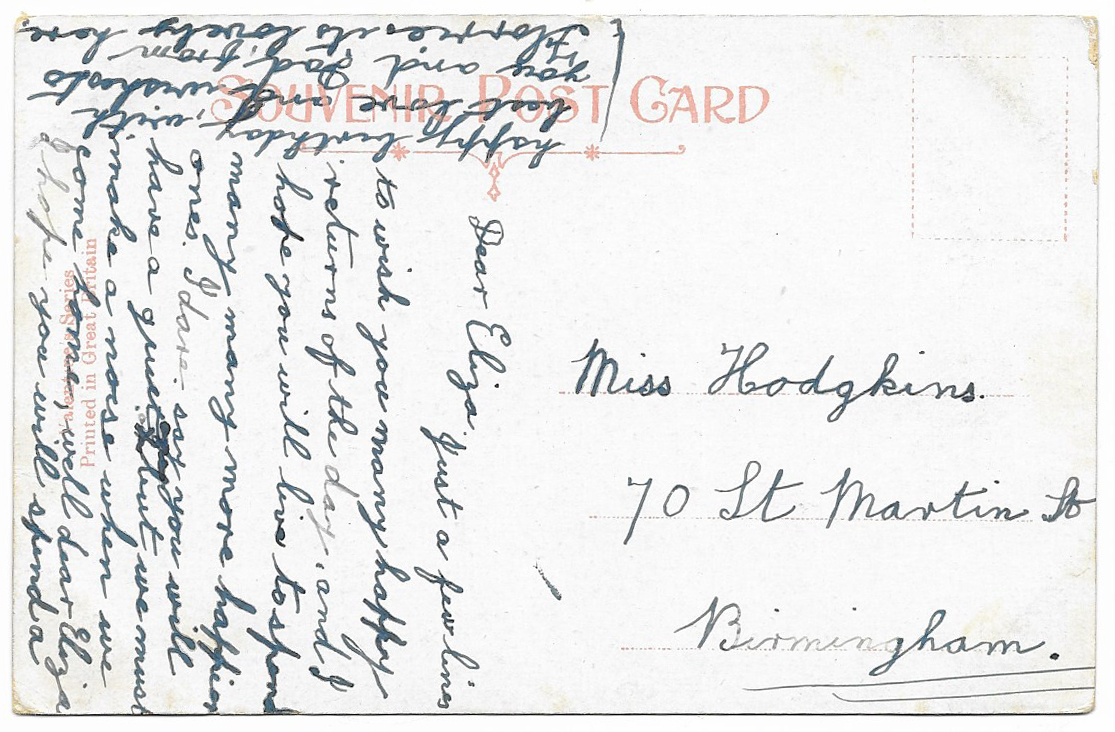 SOUVENIR POST CARD
Dear Eliza. Just a few lins
to wish you many happy
returns of the day, and I
hope you will live to spend
many many more happier
ones. I dare say you will
have a quiet but we must
make a nose when we
come home, well dear Eliza
I hope you will spend a
happy birthday, with
best love and wishes to
you and Dad, from
Florrie its lovely here.
Miss Hodgkins.
70 St Martin St
Birmingham.
Valentine's Series
Printed in Great Britain